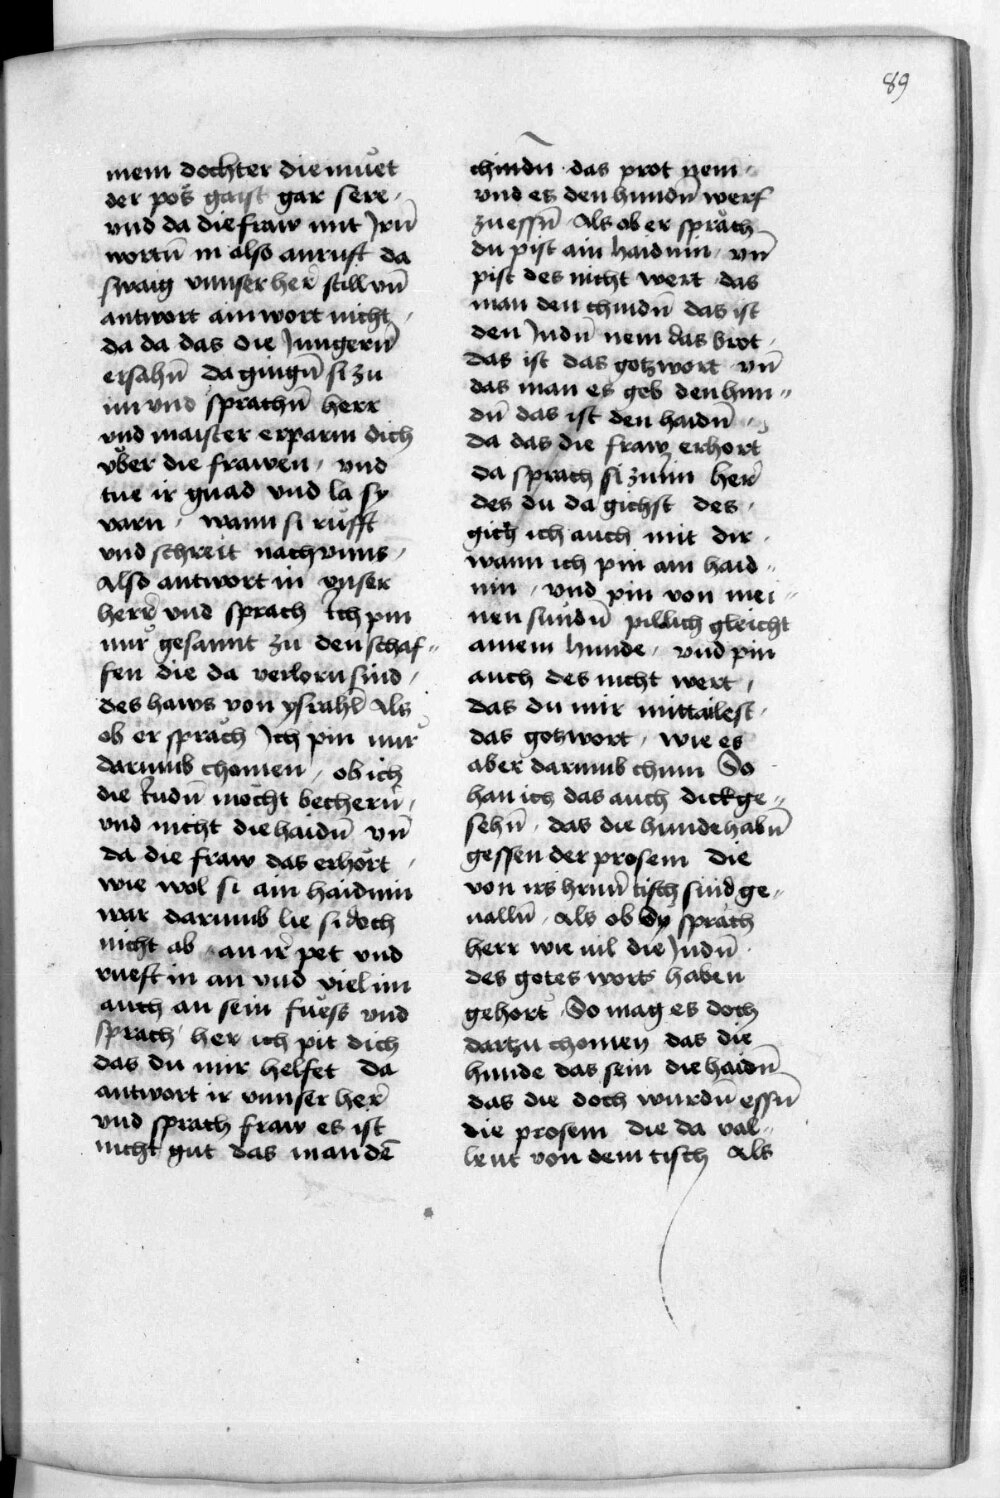 89
mein dochter die muͤet
der poͤs gaist gar sere ·
vnd da die fraw mit Jrn̄
wortn̄ in also anruft da
swaig vnnser her̄ still vn̄
antwort ain wort nicht ·
da da das die Jungern̄
ersahn̄ da gingn̄ si zu
im vnd sprachn̄ herr
vnd maister erparm dich
vͤber die frawen · vnd
tue ir gnad vnd la sy
varn · wann si ruͤfft
vnd schreit nach vnns ·
Also antwort in vnser
herr̄ vnd sprach Ich pin
nuͤr gesannt zu den schaf〃
fen die da verlorn sind ·
des haws von ysrahl̄ Als
ob er spraͤch Ich pin nuͤr
darumb chomen · ob ich
die Iudn̄ moͤcht becheren̄ ·
vnd nicht die haidn̄ vn̄
da die fraw das erhoͤrt ·
wie wol si ain haidnin
war darumb lie si doch
nicht ab · an ir̄ pet vnd
rueft in an vnd viel im
auch an sein fuͤess vnd
sprach her ich pit dich
das du mir helfet da
antwort ir vnnser her̄
vnd sprach fraw es ist
nicht gut das man dē
chindn̄ · das prot nem ·
vnd es den hundn̄ werf
zu essn̄ Als ob er spraͤch
du pist ain haidnin · vn̄
pist des nicht wert · das
man den chindn̄ das ist
den Judn̄ nem das brot ·
das ist das gotzwort · vn̄
das man es geb den hun〃
dn̄ das ist den haidn̄ ·
da das die fraw erhort
da sprach si zu im her̄
des du da gichst des ·
gich ich auch mit dir ·
wann ich pin ain haid〃
nin · vnd pin von mei〃
nen sundn̄ pillich gleicht
ainem hunde · vnd pin
auch des nicht wert ·
das du mir mittailest ·
das gotzwort · wie es
aber darumb chum So
han ich das auch dick ge〃
sehn̄ · das die hunde habn̄
gessen der prosem die
von irs hrnn̄ tisch sind ge〃
ualln̄ · Als ob sy spraͤch
herr wie uil die Judn̄ ·
des gotes worts haben
gehort · So mag es doch
dartzu chomen das die
hunde das sein die haidn̄
das die doch wurdn̄ essn̄
die prosem die da val〃
lent von dem tisch Als